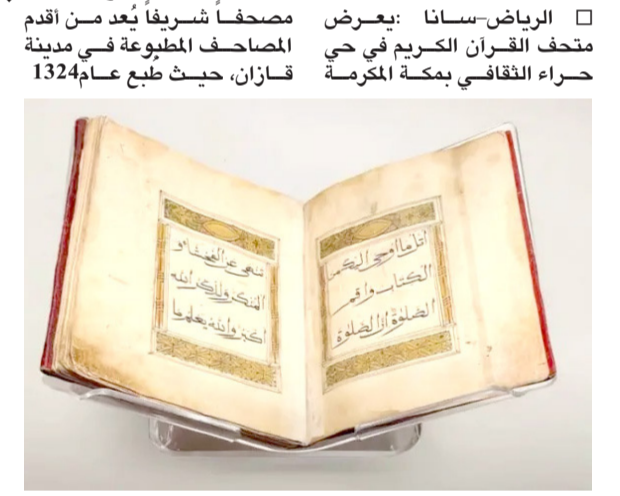 □ الرياض-سانا :يعرض
متحف القرآن الكريم في حي
حراء الثقافي بمكة المكرمة
مصحفاً شريفاً يُعد من أقدم
المصاحف المطبوعة في مدينة
قازان، حيث طُبع عام1324
اتل ما اوحي اليك من
الكتاب واقم
الصلوة ان الصلوة
تنهى عن الفحشاء و
المنكر ولذكر الله
اكبر والله يعلم ما